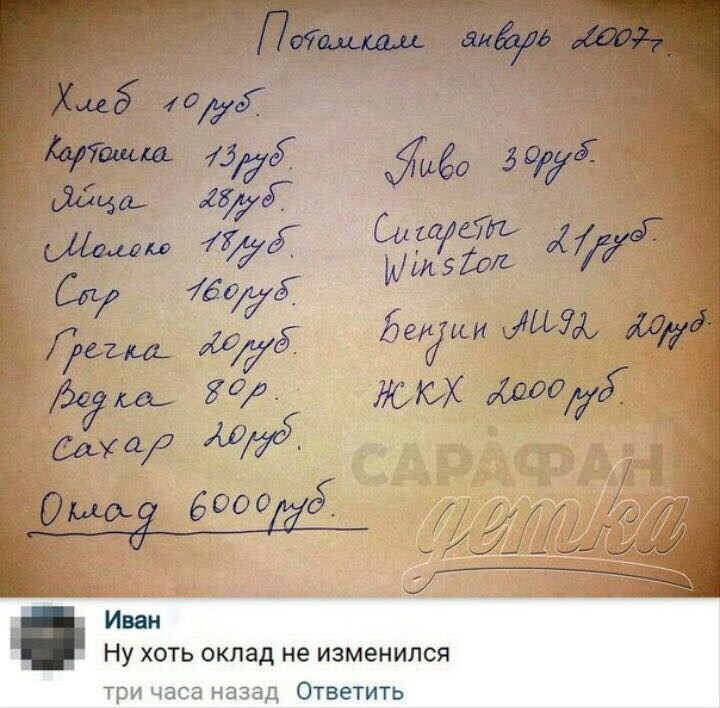 Потомкам январь 2007г.
Хлеб 10руб.
Картошка 13руб.
Яйца 28руб.
Молоко 18руб.
Сыр 160руб.
Гречка 20руб.
Водка 80р.
Сахар 20руб.
Оклад 6000руб.
Пиво 30руб.
Сигареты
Winston 21руб.
Бензин АИ92 20руб.
ЖКХ 2000руб.
САРАФАН
детка
Иван
Ну хоть оклад не изменился
три часа назад Ответить